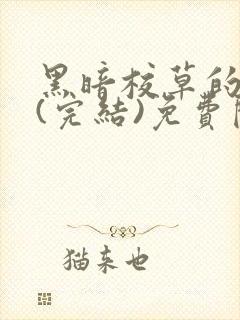 黑暗校草的
(完結)免費
猫来也